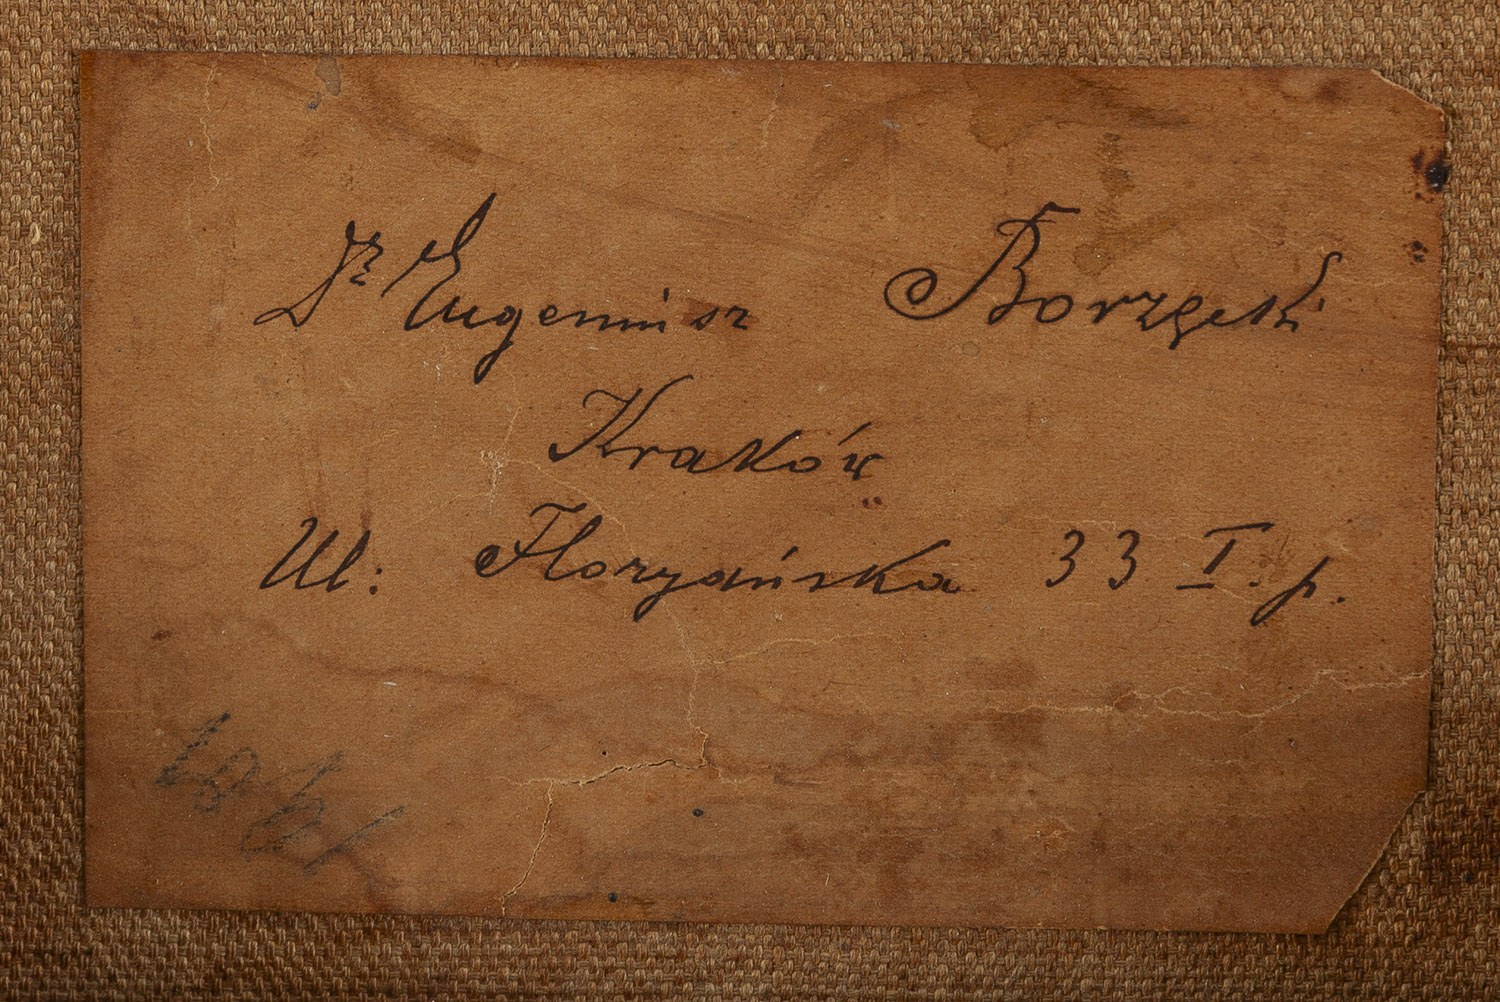 Dr Eugeniusz Borzęcki
Kraków
Ul: Floryańska 33 I. p.